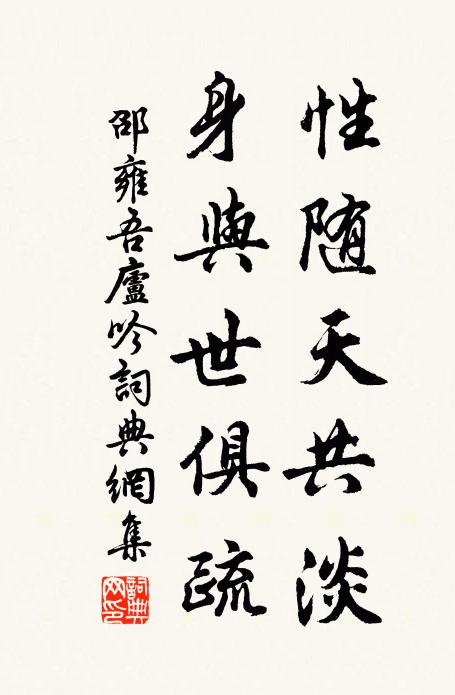 性随天共淡
身與世俱疏
邵雍吾廬吟詞典網集
詞典網印